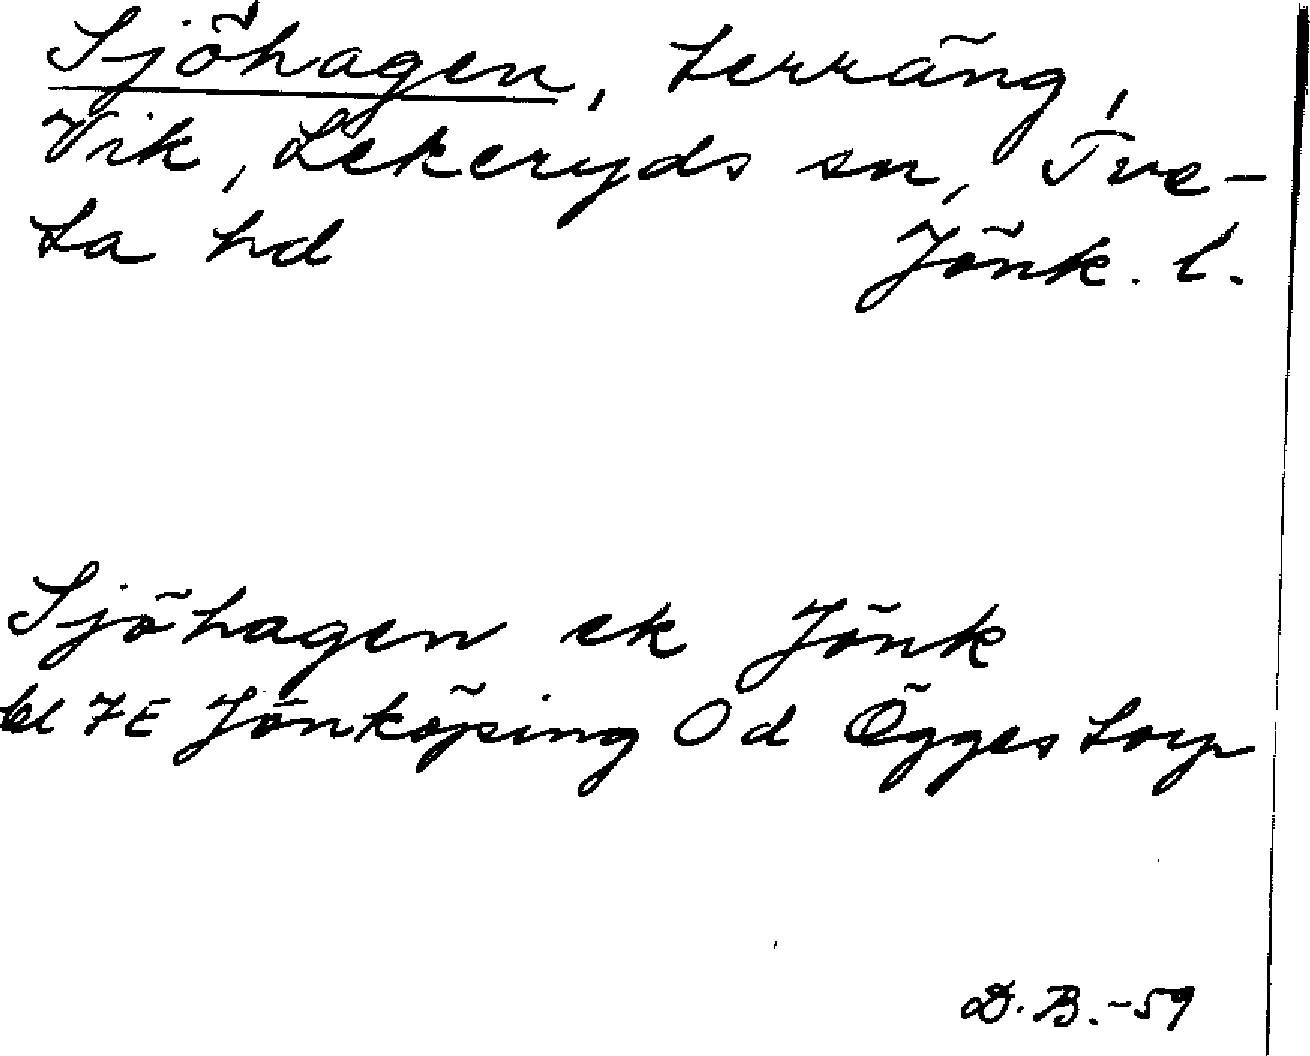 Sjöhagen, terräng,
Vik, Lekeryds sn, Tve-
ta hd Jönk. l.
Sjöhagen ek Jönk
bl 7E Jönköping Od Öggestorp
D.B.-59